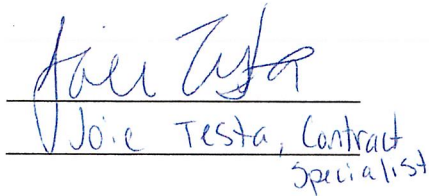 Joie Testa
Joie Testa, Contract
Specialist